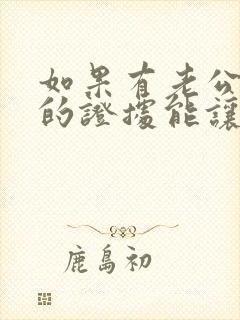 如果有老公
的證據能讓
鹿島初